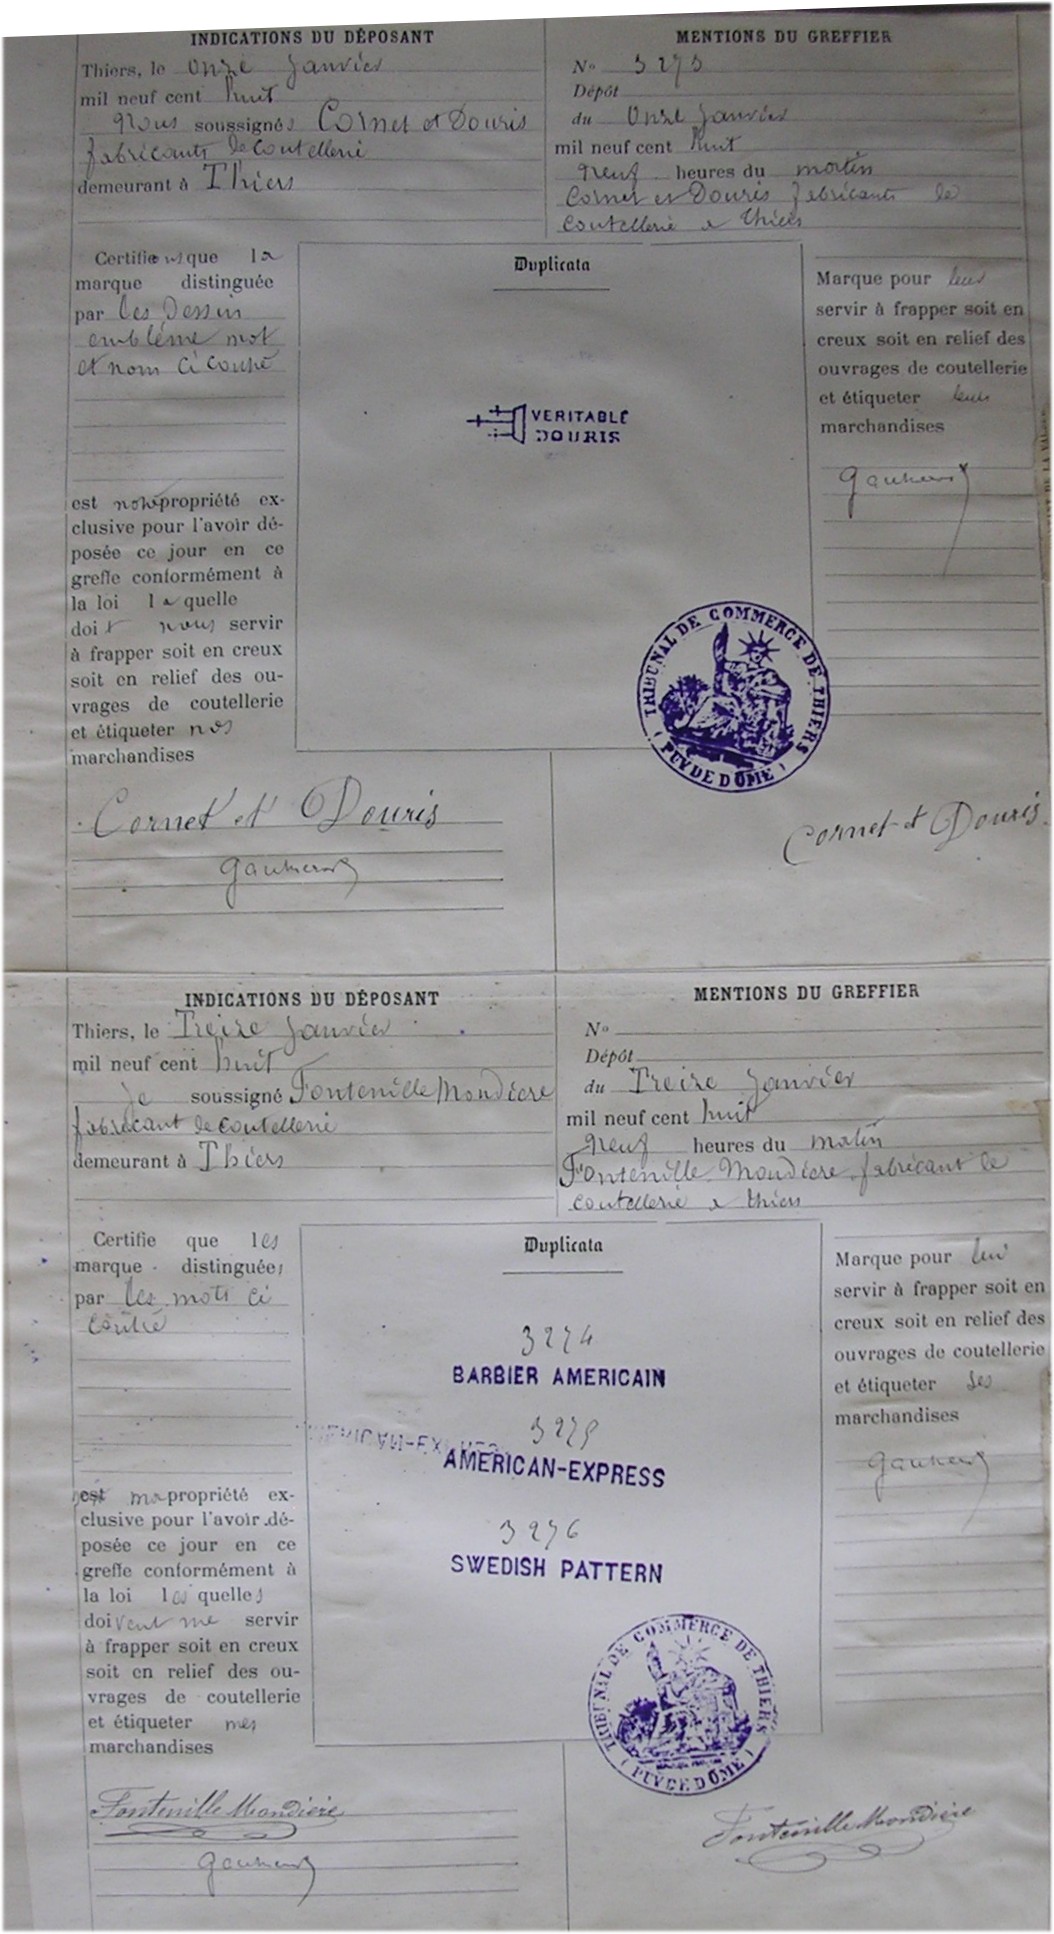 INDICATIONS DU DÉPOSANT
Thiers, le Onze Janvier
mil neuf cent huit
Nous soussignés Cornet et Douris
fabricants de coutellerie
demeurant à Thiers
MENTIONS DU GREFFIER
No 3273
Dépôt
du Onze Janvier
mil neuf cent huit
Neuf heures du matin
Cornet et Douris fabricants de
coutellerie a thiers
Certifions que la
marque distinguée
par les Dessin
emblème mot
et nom ci contre
est notre propriété ex-
clusive pour l'avoir dé-
posée ce jour en ce
greffe conformément à
la loi laquelle
doit nous servir
à frapper soit en creux
soit en relief des ou-
vrages de coutellerie
et étiqueter nos
marchandises
Cornet et Douris
Duplicata
VERITABLE
DOURIS
TRIBUNAL DE COMMERCE DE THIERS
(PUY DE DÔME)
Marque pour leur
servir à frapper soit en
creux soit en relief des
ouvrages de coutellerie
et étiqueter leurs
marchandises
Cornet et Douris
INDICATIONS DU DÉPOSANT
Thiers, le Treize Janvier
mil neuf cent huit
Je soussigné Fontenille Mondière
fabricant de coutellerie
demeurant à Thiers
MENTIONS DU GREFFIER
No
Dépôt
du Treize Janvier
mil neuf cent huit
Neuf heures du matin
Fontenille Mondière fabricant de
coutellerie a thiers
Certifie que les
marque distinguées
par les mots ci
contre
est ma propriété ex-
clusive pour l'avoir dé-
posée ce jour en ce
greffe conformément à
la loi lesquelles
doivent me servir
à frapper soit en creux
soit en relief des ou-
vrages de coutellerie
et étiqueter mes
marchandises
Fontenille Mondière
Duplicata
3274
BARBIER AMERICAIN
3275
AMERICAN-EXPRESS
3276
SWEDISH PATTERN
TRIBUNAL DE COMMERCE DE THIERS
(PUY DE DÔME)
Marque pour lui
servir à frapper soit en
creux soit en relief des
ouvrages de coutellerie
et étiqueter ses
marchandises
Fontenille Mondière